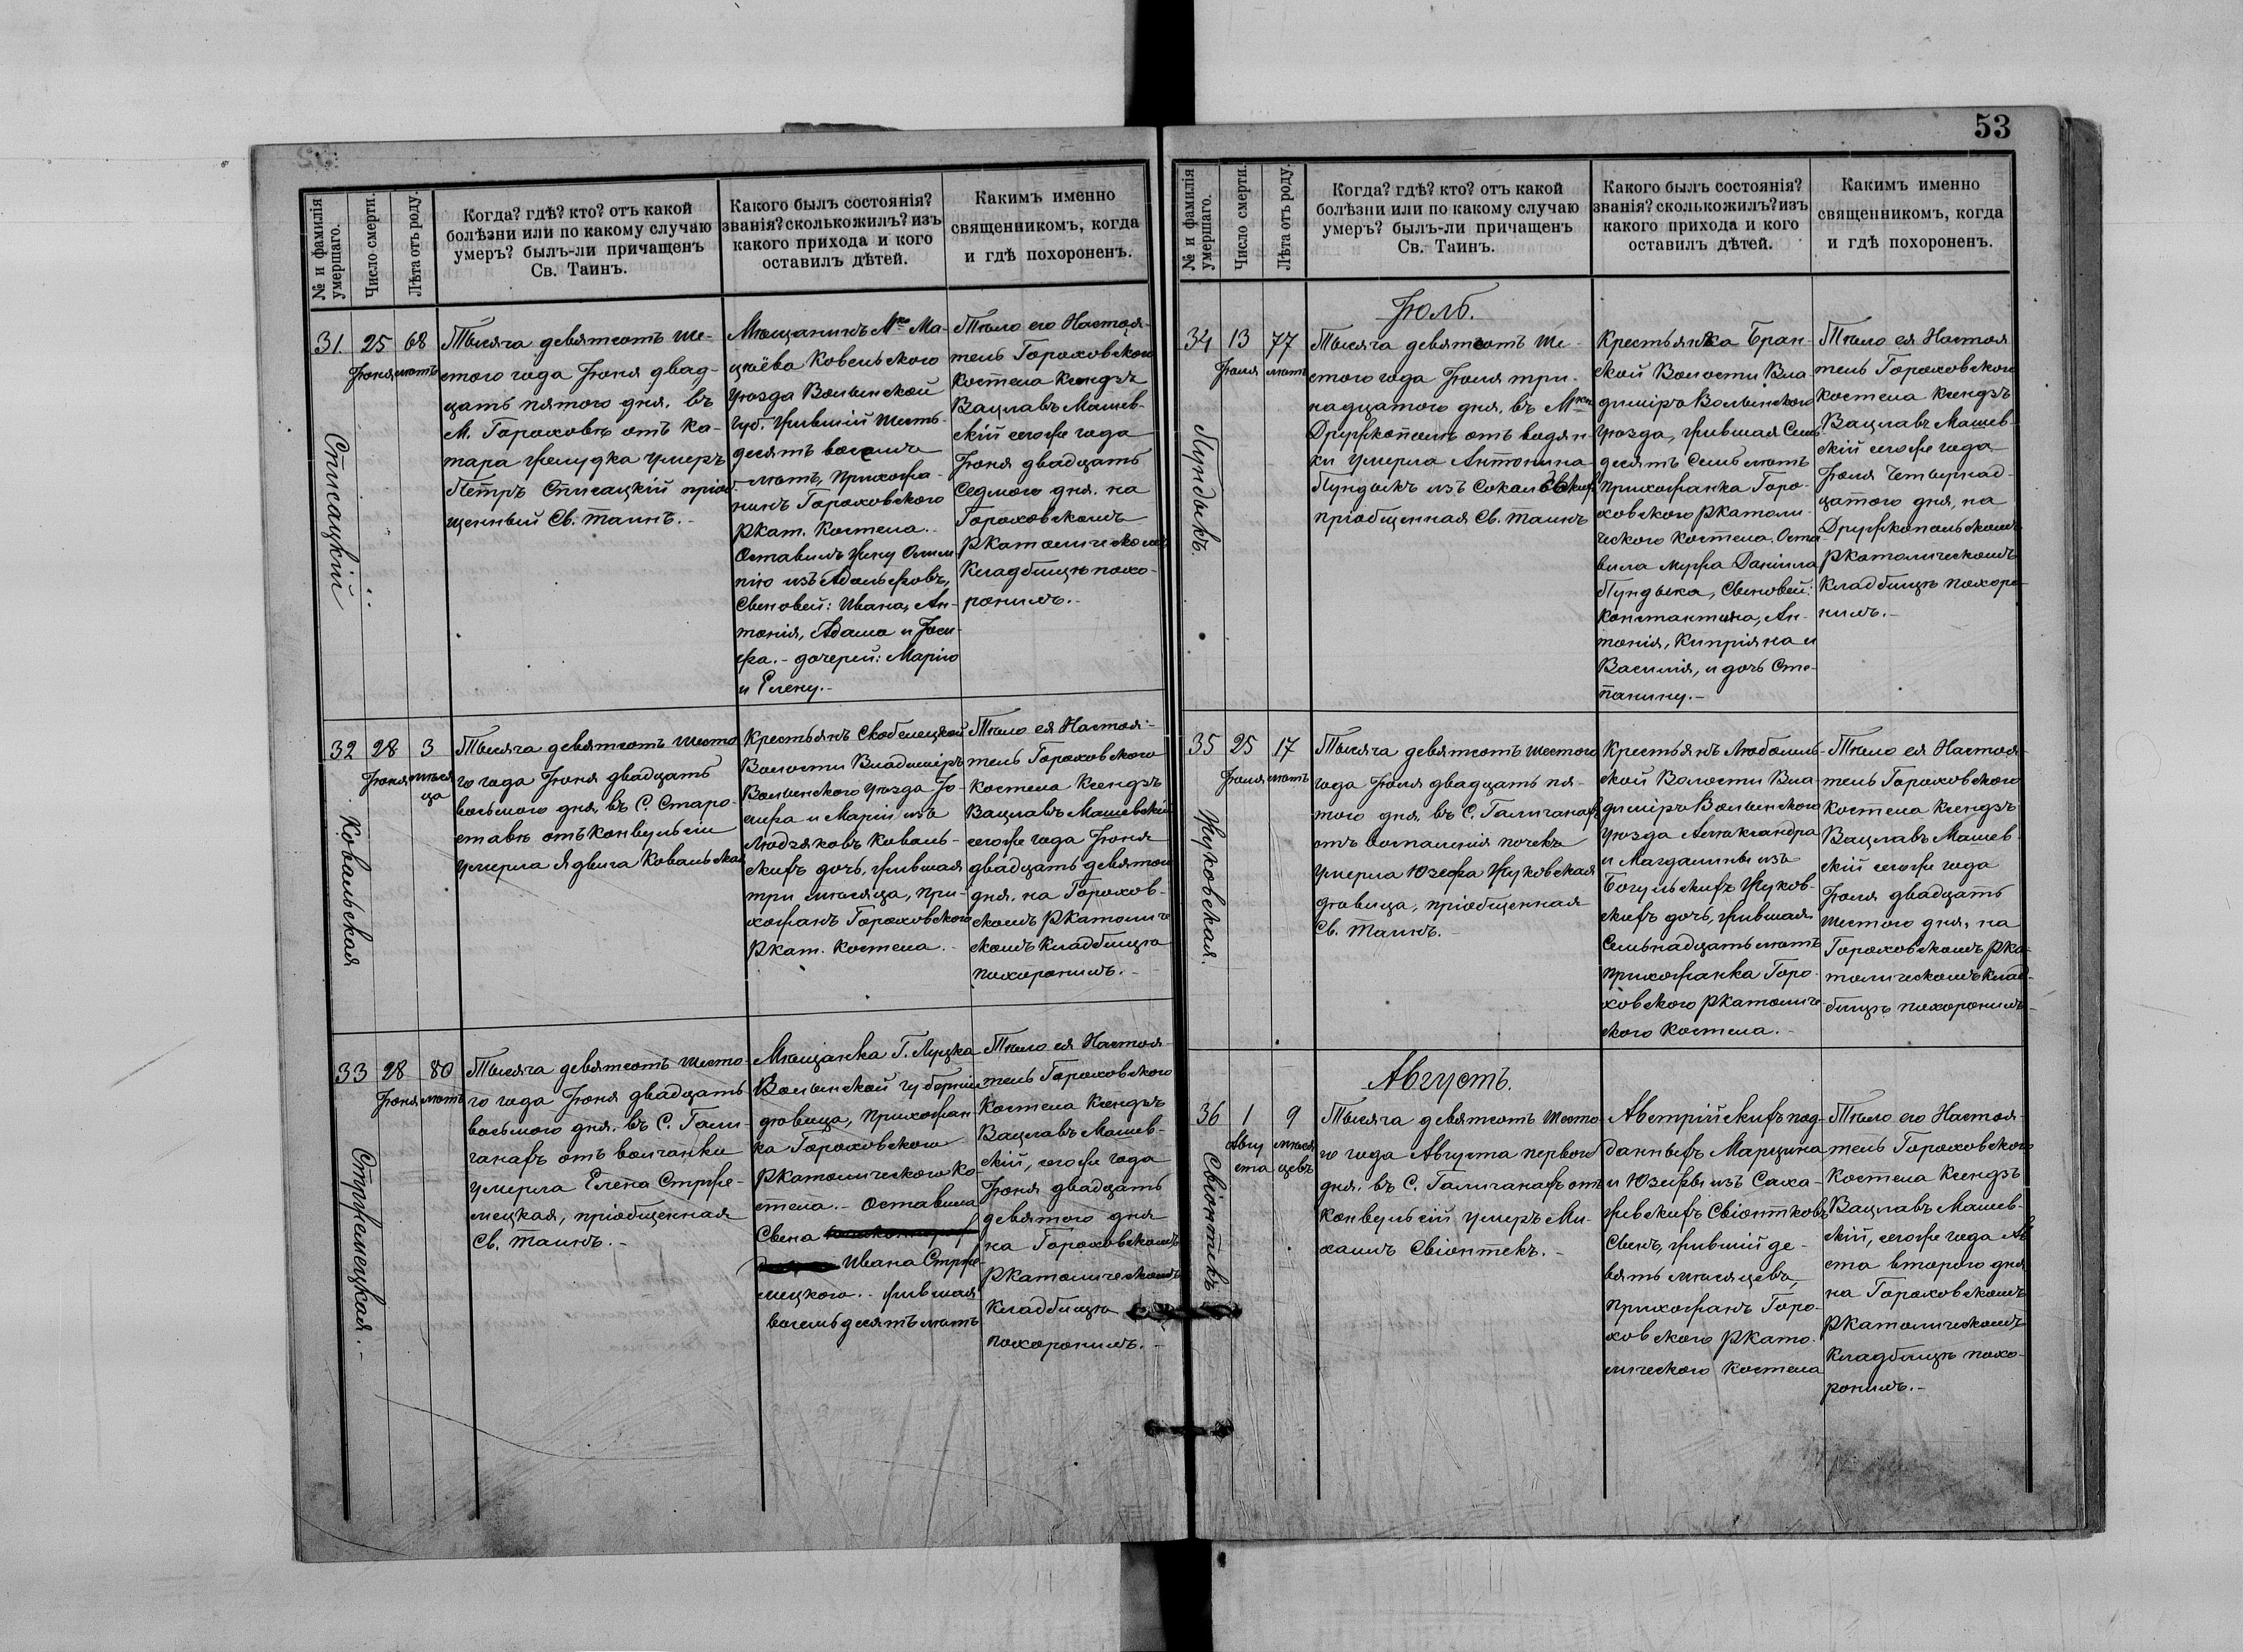 53
№ и фамилія умершаго.
Число смерти.
Лѣта отъ роду.
Когда? гдѣ? кто? отъ какой
болѣзни или по какому случаю
умеръ? былъ-ли причащенъ
Св. Таинъ.
Какого былъ состоянія?
званія? сколько жилъ? изъ
какого прихода и кого
оставилъ дѣтей.
Какимъ именно
священникомъ, когда
и гдѣ похороненъ.
31.
25
Іюня
68
лѣтъ
Списацкій
Тысяча девятсотъ ше-
стого года Іюня двад-
цать пятого дня, въ
М. Гороховѣ отъ ка-
тара желудка умеръ
Петръ Списацкій пріоб-
щенный Св. таинъ.-
Мѣщанинъ Мка Ма-
цѣёва Ковельского
уѣзда Волынской
губ. жившій шесть-
десятъ восемь
лѣтъ, прихожа-
нинъ Гороховского
Ркат. Костела.
Оставилъ жену Олим
пію изъ Адольфовъ,
Сыновей: Ивана, Ан-
тонія, Адама и Іоси-
фа.- дочерей: Марію
и Елену.-
Тѣло его Настоя-
тель Гороховского
Костела Ксендзъ
Вацлавъ Машев-
скій сегоже года
Іюня двадцать
Седмого дня, на
Гороховскомъ
Ркатолическомъ
Кладбищѣ похо-
ронилъ.-
32
28
Іюня
3
мѣся
ца
Ковальская
Тысяча девятсотъ шесто
го года Іюня двадцать
восьмого дня, въ С. Старо-
ставѣ отъ конвульсіи
умерла Ядвига Ковальская
Крестьянъ Скобелецкой
Волости Владиміръ
Волынского уѣзда Іо-
сифа и Маріи изъ
Людзяковъ Коваль-
скихъ дочь, жившая
три мѣсяца, при-
хожанъ Гороховского
Ркат. Костела.-
Тѣло ея Настоя-
тель Гороховского
Костела Ксендзъ
Вацлавъ Машевскій
сегоже года Іюня
двадцать девятого
дня, на Горохов-
скомъ Ркатоличе
скомъ Кладбищѣ
похоронилъ.-
33
28
Іюня
80
лѣтъ
Стржемецкая.-
Тысяча девятсотъ шесто-
го года Іюня двадцать
восьмого дня, въ С. Гали-
чанахъ отъ волчанки
умерла Елена Стрже-
мецкая, пріобщенная
Св. таинъ.-
Мѣщанка Г. Луцка
Волынской губерніи
дѣвица, прихожан-
ка Гороховского
Ркатолического Ко-
стела.- Оставила
Сына
Ивана Стрже-
мецкого.- жившая
восемьдесятъ лѣтъ
Тѣло ея Настоя-
тель Гороховского
Костела Ксендзъ
Вацлавъ Машев-
скій, сегоже года
Іюня двадцать
девятого дня
на Гороховскомъ
Ркатолическомъ
Кладбищѣ
похоронилъ.-
№ и фамилія умершаго.
Число смерти.
Лѣта отъ роду.
Когда? гдѣ? кто? отъ какой
болѣзни или по какому случаю
умеръ? былъ-ли причащенъ
Св. Таинъ.
Какого былъ состоянія?
званія? сколько жилъ? изъ
какого прихода и кого
оставилъ дѣтей.
Какимъ именно
священникомъ, когда
и гдѣ похороненъ.
Іюль.
34
13
Іюля
77
лѣтъ
Пундыкъ.
Тысяча девятсотъ ше-
стого года Іюля три-
надцатого дня, въ Мкѣ
Дружкополѣ отъ водян-
ки умерла Антонина
Пундыкъ изъ Соколовскихъ
пріобщенная Св. таинъ
Крестьянка Бран-
ской Волости Вла-
диміръ Волынского
уѣзда, жившая Семь-
десятъ Семь лѣтъ
прихожанка Горо-
ховского Ркатоли-
ческого Костела. Оста-
вила мужа Даніила
Пундыка, Сыновей:
Константина, Ан-
тонія, Кипріяна и
Василія, и дочь Сте-
панину.-
Тѣло ея Настоя
тель Гороховского
Костела Ксендзъ
Вацлавъ Машев-
скій сегоже года
Іюля Четырнад-
цатого дня, на
Дружкопольскомъ
Ркатолическомъ
Кладбищѣ похоро-
нилъ.-
35
25
Іюля
17
лѣтъ
Жуковская.
Тысяча девятсотъ шестого
года Іюля двадцать пя-
того дня, въ С. Галичанахъ
отъ воспаленія почекъ
умерла Юзефа Жуковская
дѣвица, пріобщенная
Св. таинъ.-
Крестьянъ Любомль-
ской Волости Вла-
диміръ Волынского
уѣзда Александра
и Магдалины изъ
Богульскихъ Жуков-
скихъ дочь, жившая
Семьнадцать лѣтъ
прихожанка Горо-
ховского Ркатоличе-
ского Костела.-
Тѣло ея Настоя-
тель Гороховского
Костела Ксендзъ
Вацлавъ Машев-
скій сегоже года
Іюля двадцать
шестого дня, на
Гороховскомъ Рка-
толическомъ Клад-
бищѣ похоронилъ.-
Августъ.
36
1
Авгу
ста
9
мѣся
цевъ
Свіонтекъ
Тысяча девятсотъ шесто-
го года Августа первого
дня, въ С. Галичанахъ отъ
конвульсій умеръ Ми-
хаилъ Свіонтекъ.-
Австрійскихъ под-
данныхъ Марцина
и Юзефы изъ Саха-
жевскихъ Свіонтковъ
Сынъ, жившій де-
вять мѣсяцевъ,
прихожанъ Горо-
ховского Ркато-
лического Костела
Тѣло его Настоя-
тель Гороховского
Костела Ксендзъ
Вацлавъ Машев-
скій, сегоже года Ав
ста второго дня
на Гороховскомъ
Ркатолическомъ
Кладбищѣ похо-
ронилъ.-